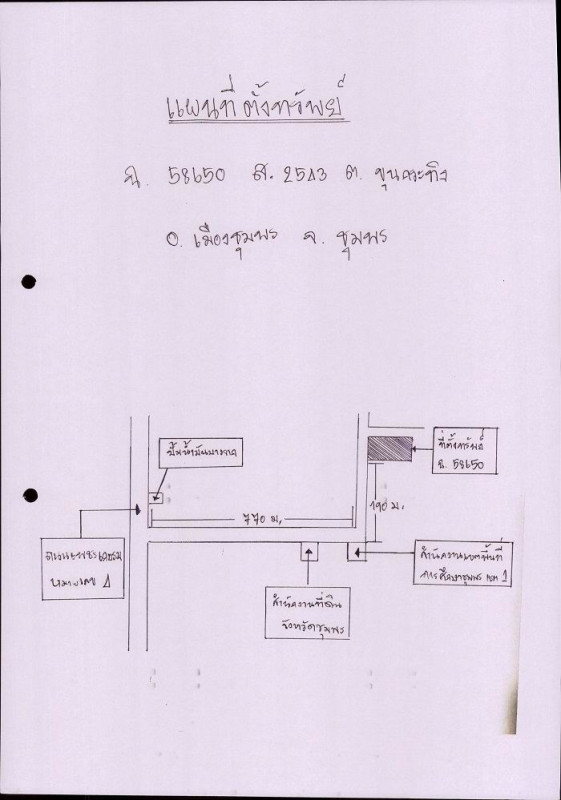 แผนที่ตั้งทรัพย์
ฉ. 58650 ส. 2543 ต. ขุนกระทิง
อ. เมืองชุมพร จ. ชุมพร
ปั๊มน้ำมันบางจาก
ที่ตั้งทรัพย์
ฉ. 58650
770 ม.
190 ม.
ถนนเพชรเกษม
หมายเลข 4
สำนักงานเขตพื้นที่
การศึกษาชุมพร เขต 1
สำนักงานที่ดิน
จังหวัดชุมพร